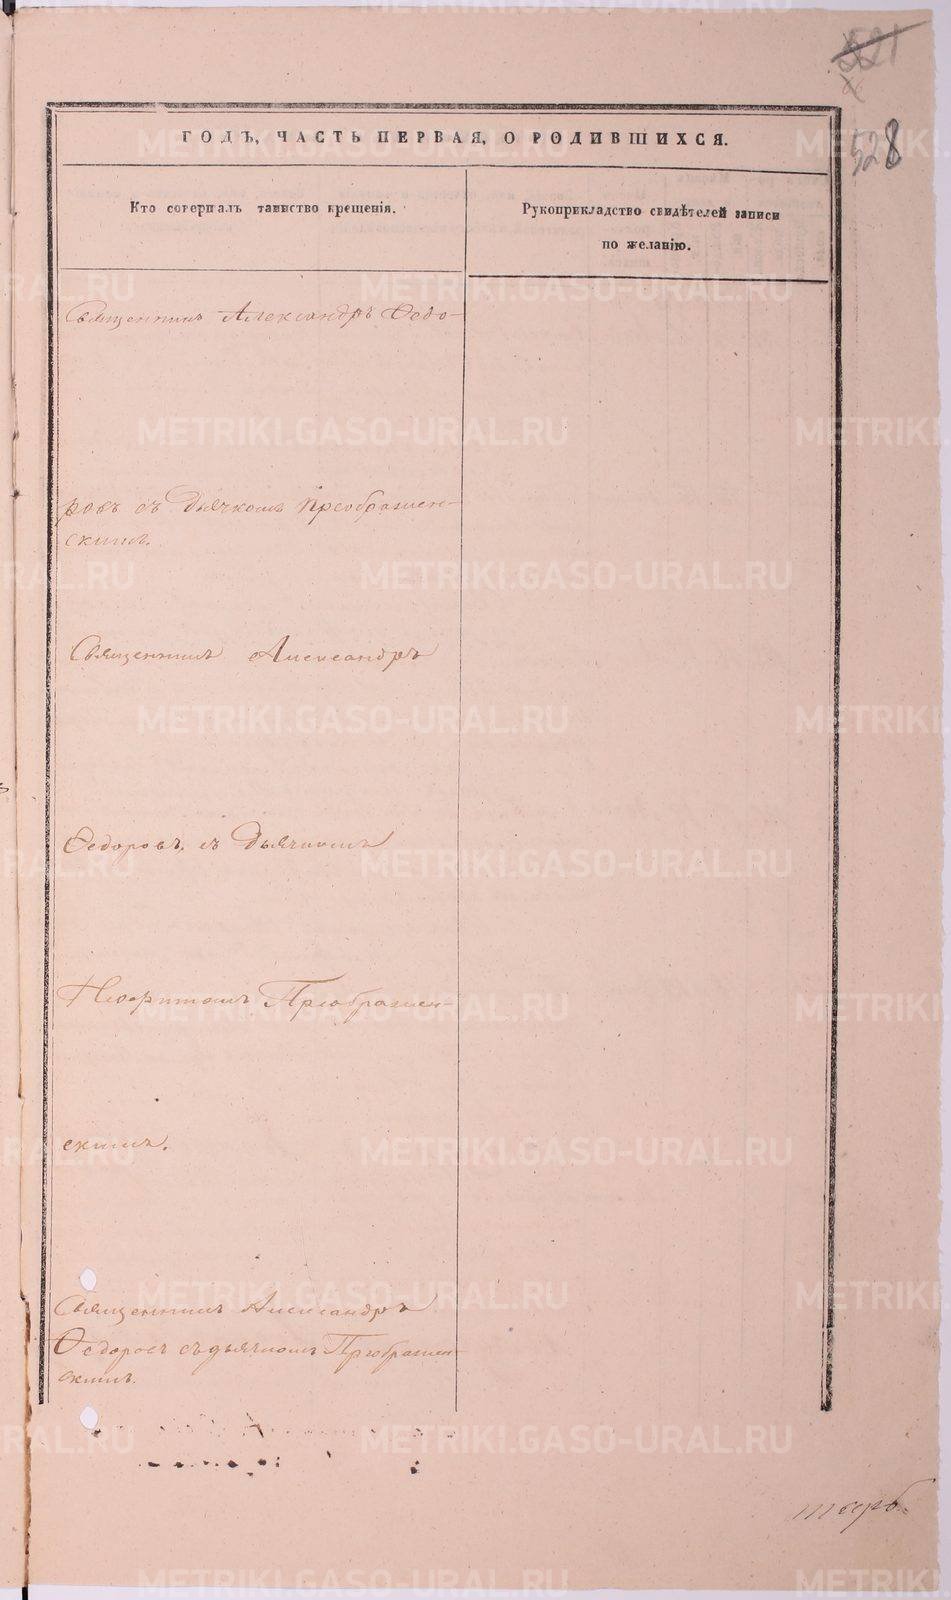 521
528
ГОДЪ, ЧАСТЬ ПЕРВАЯ, О РОДИВШИХСЯ.
Кто совершалъ таинство крещенія.
Рукоприкладство свидѣтелей записи
по желанію.
Священникъ Александръ Ѳедо-
ровъ съ Дьячкомъ Преображен-
скимъ.
Священникъ Александръ
Ѳедоровъ, съ Дьячкомъ
Неофитомъ Преображен-
скимъ.
Священникъ Александръ
Ѳедоровъ съ дьячкомъ Преображен-
скимъ.
METRIKI.GASO-URAL.RU